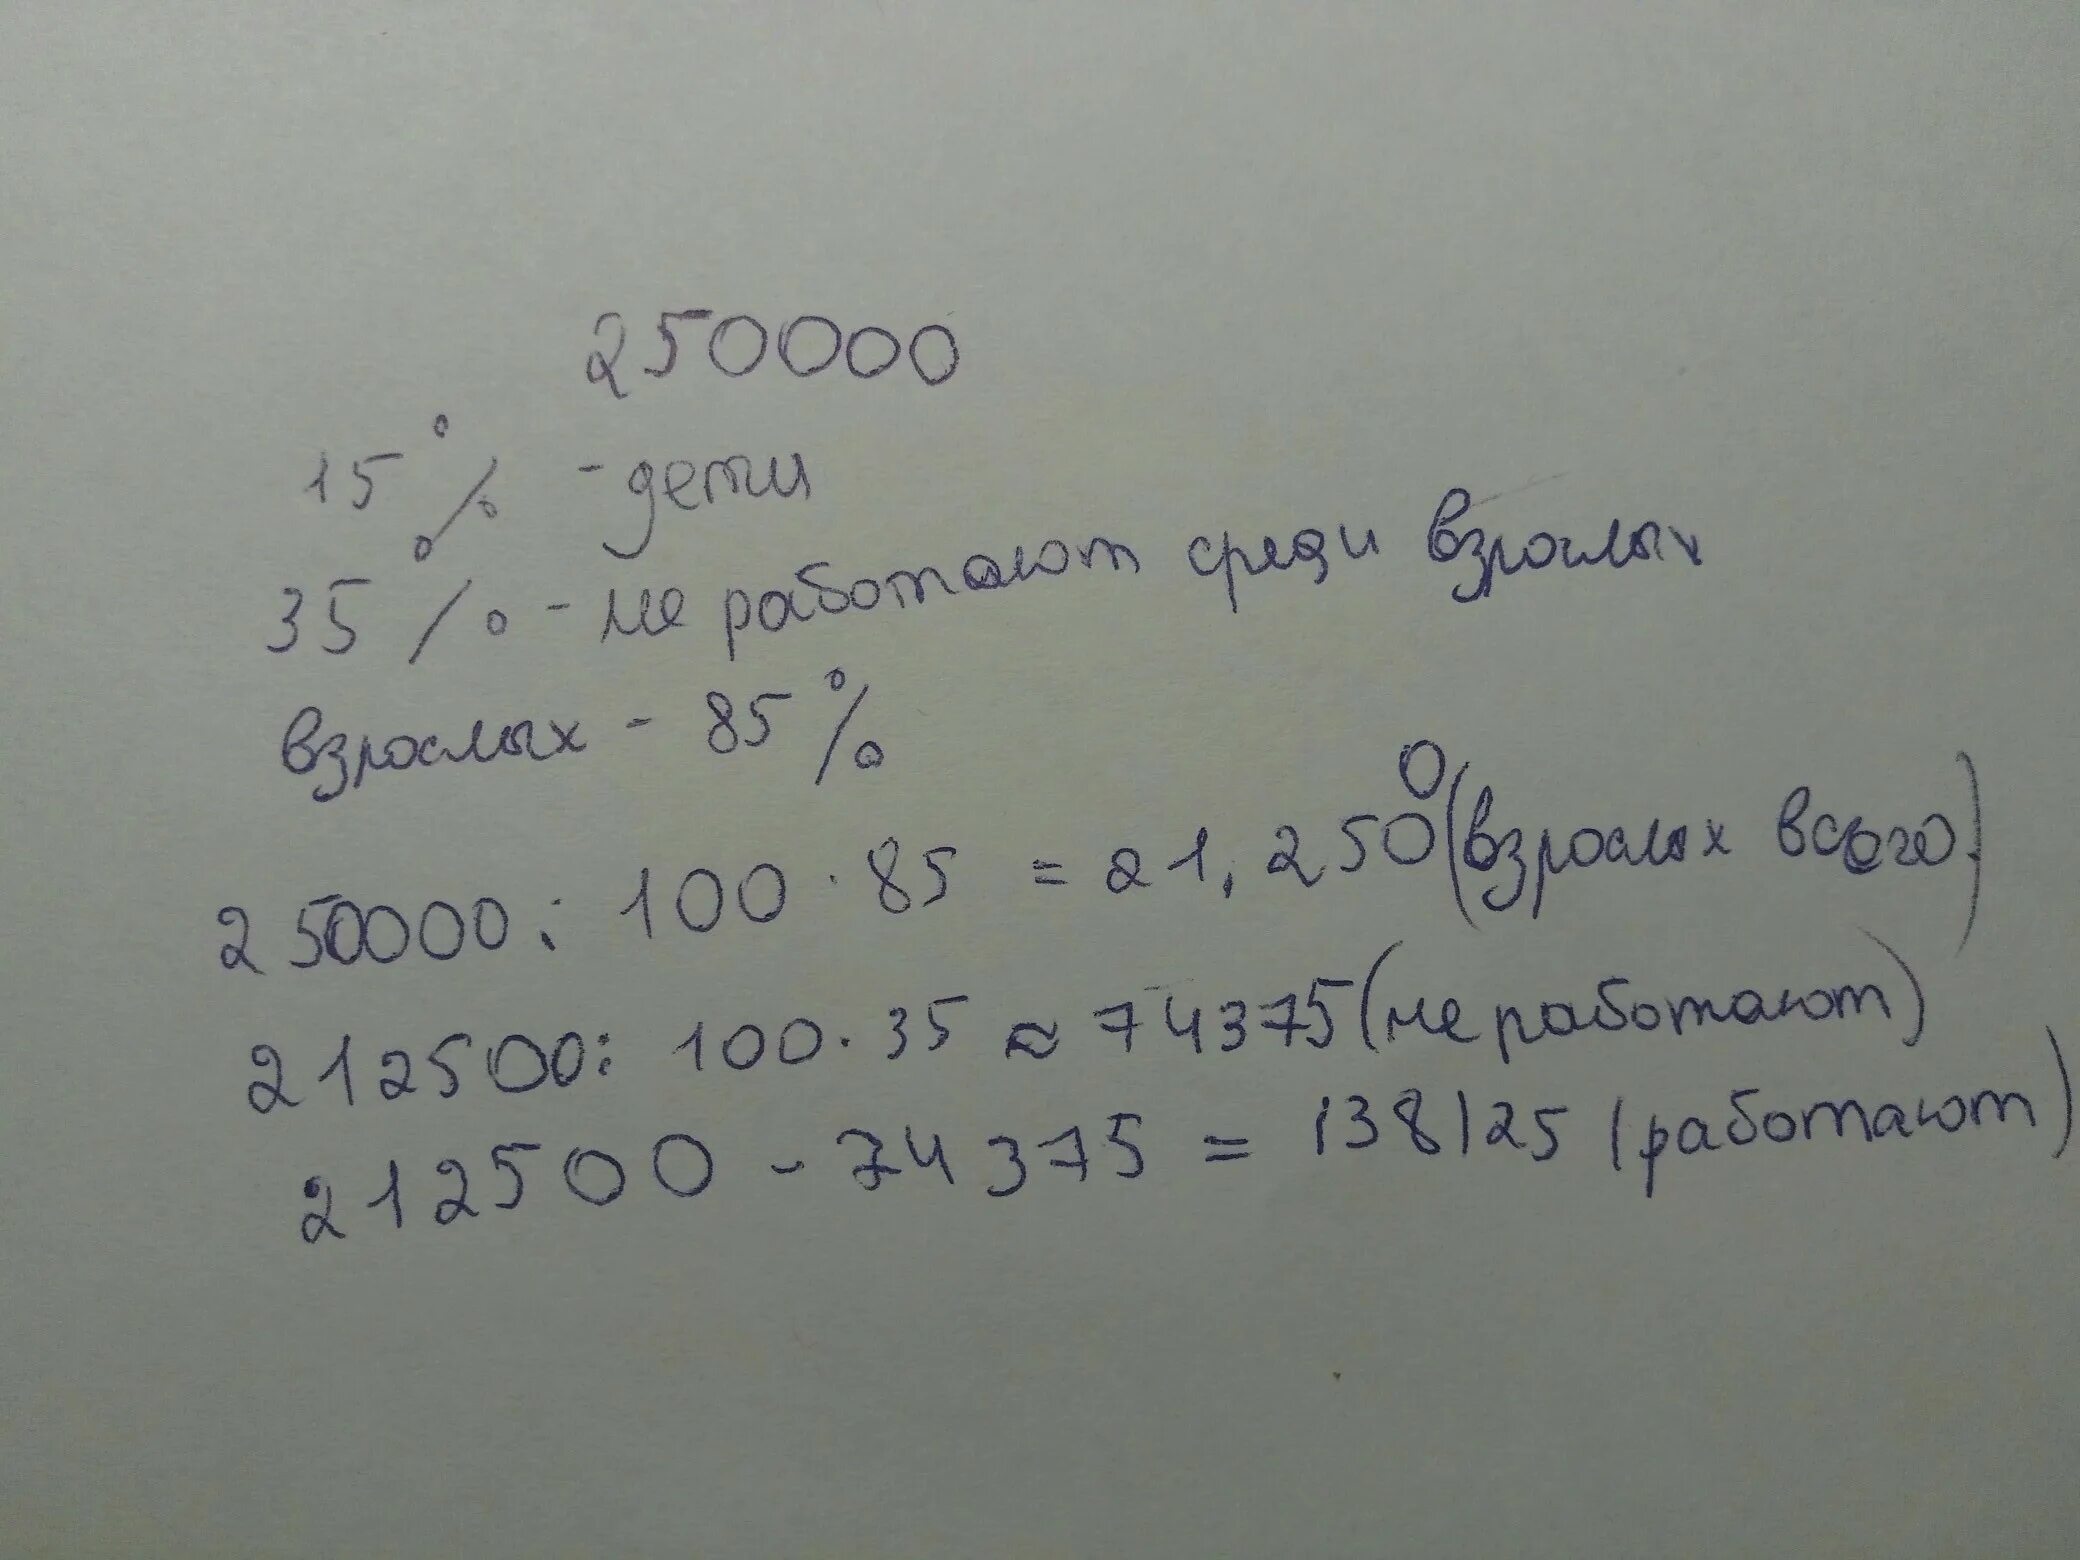 250000
15% - дети
35% - не работают среди взрослых
взрослых - 85%
250000 : 100 · 85 = 21,2500 (взрослых всего)
212500 : 100 · 35 ≈ 74375 (не работают)
212500 - 74375 = 138125 (работают)